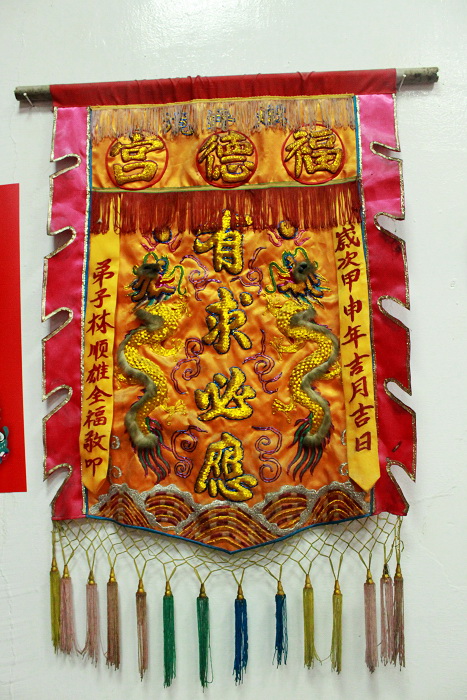 福德宮
歲次甲申年吉月吉日
有求必應
弟子林順雄全福敬叩